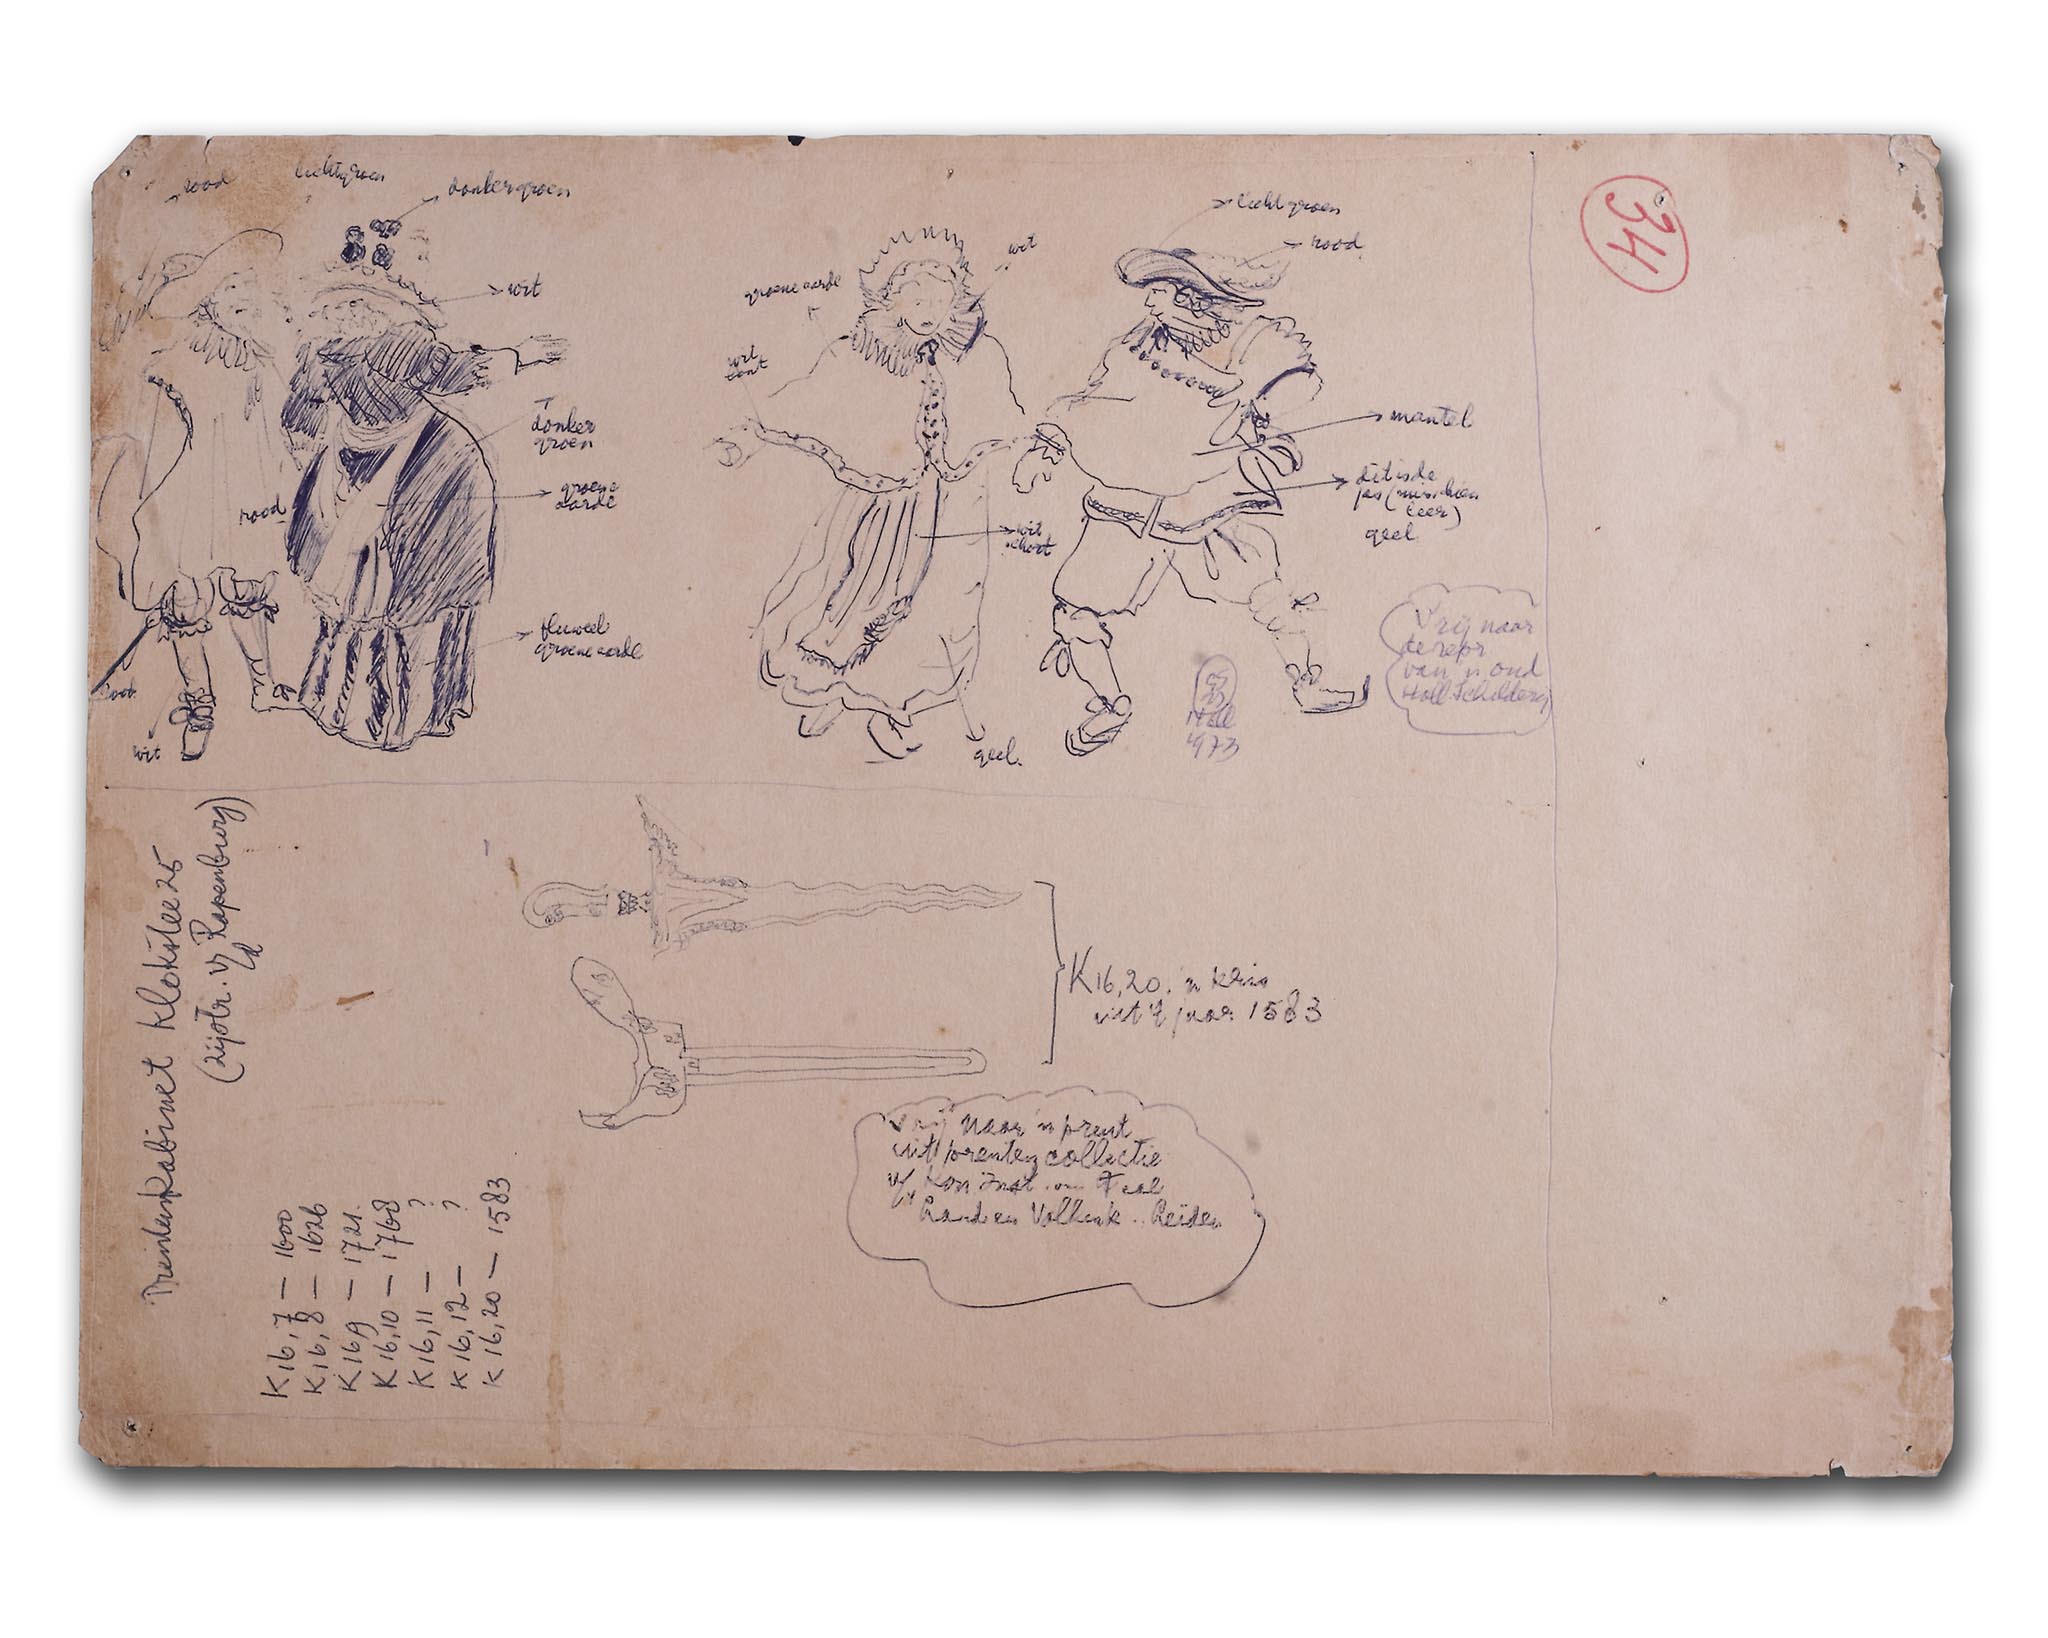 rood
lichtgroen
donkergroen
wit
donker
groen
groene
aarde
rood
fluweel
groene aarde
rood
wit
groene aarde
wit
wit
kant
wit
schort
geel
lichtgroen
rood
mantel
dit is de
jas (misschien
leer)
geel
Vrij naar
de repr
van 'n oud
Holl. Schilderij
Holl
973
34
Prentenkabinet Kloksteeg 25
(zijstr. v/d Rapenburg)
K16,7 — 1600
K16,8 — 1626
K16,9 — 1721.
K16,10 — 1768
K16,11 — ?
K16,12 — ?
K16,20 — 1583
K16,20. 'n kris
uit 't jaar 1583
Vrij naar 'n prent
uit prenten collectie
v/h Kon Inst. Taal
Land en Volkenk.. Leiden